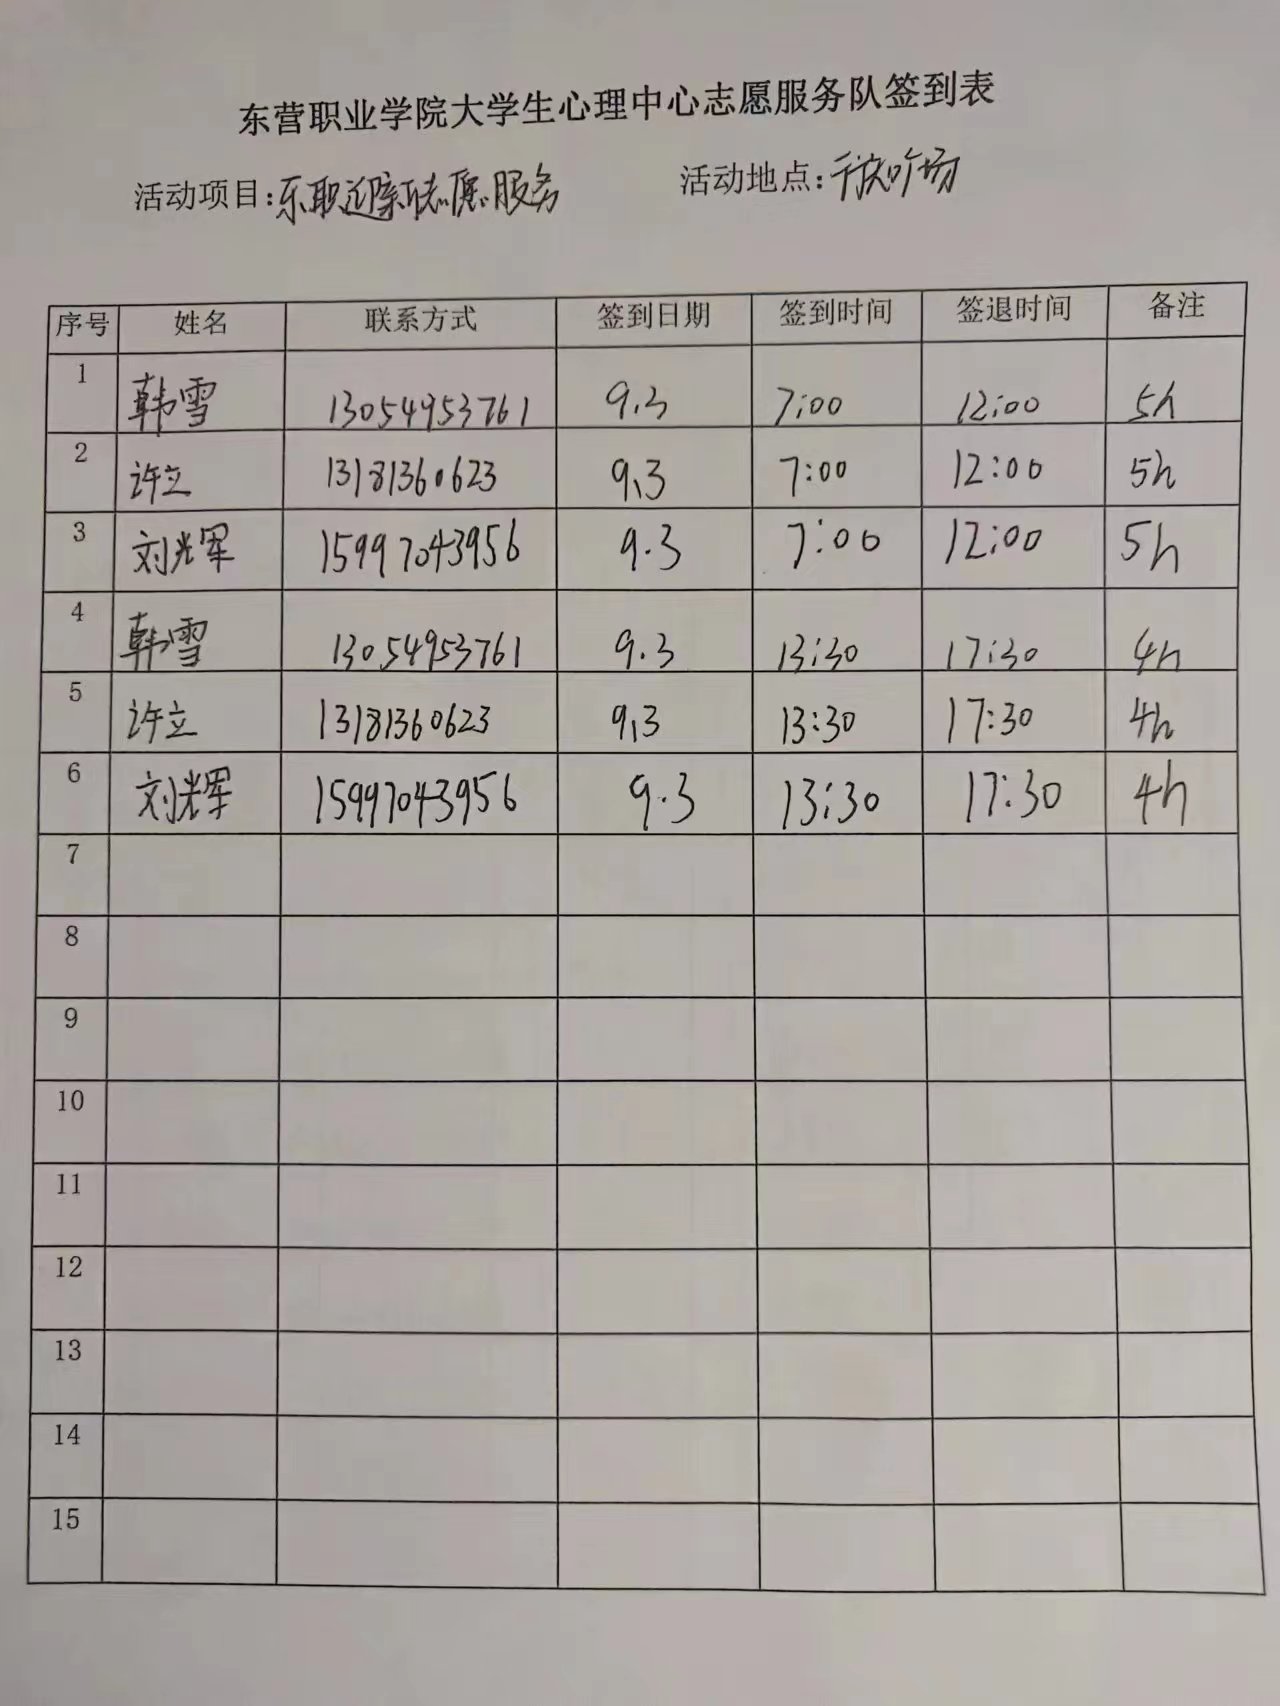 东营职业学院大学生心理中心志愿服务队签到表
活动项目:东职迎新志愿服务 活动地点:
序号 姓名 联系方式 签到日期 签到时间 签退时间 备注
1 韩雪 13054953761 9.3 7:00 12:00 5h
2 许立 13181360623 9.3 7:00 12:00 5h
3 刘光军 15997043956 9.3 7:00 12:00 5h
4 韩雪 13054953761 9.3 13:30 17:30 4h
5 许立 13181360623 9.3 13:30 17:30 4h
6 刘光军 15997043956 9.3 13:30 17:30 4h
7
8
9
10
11
12
13
14
15